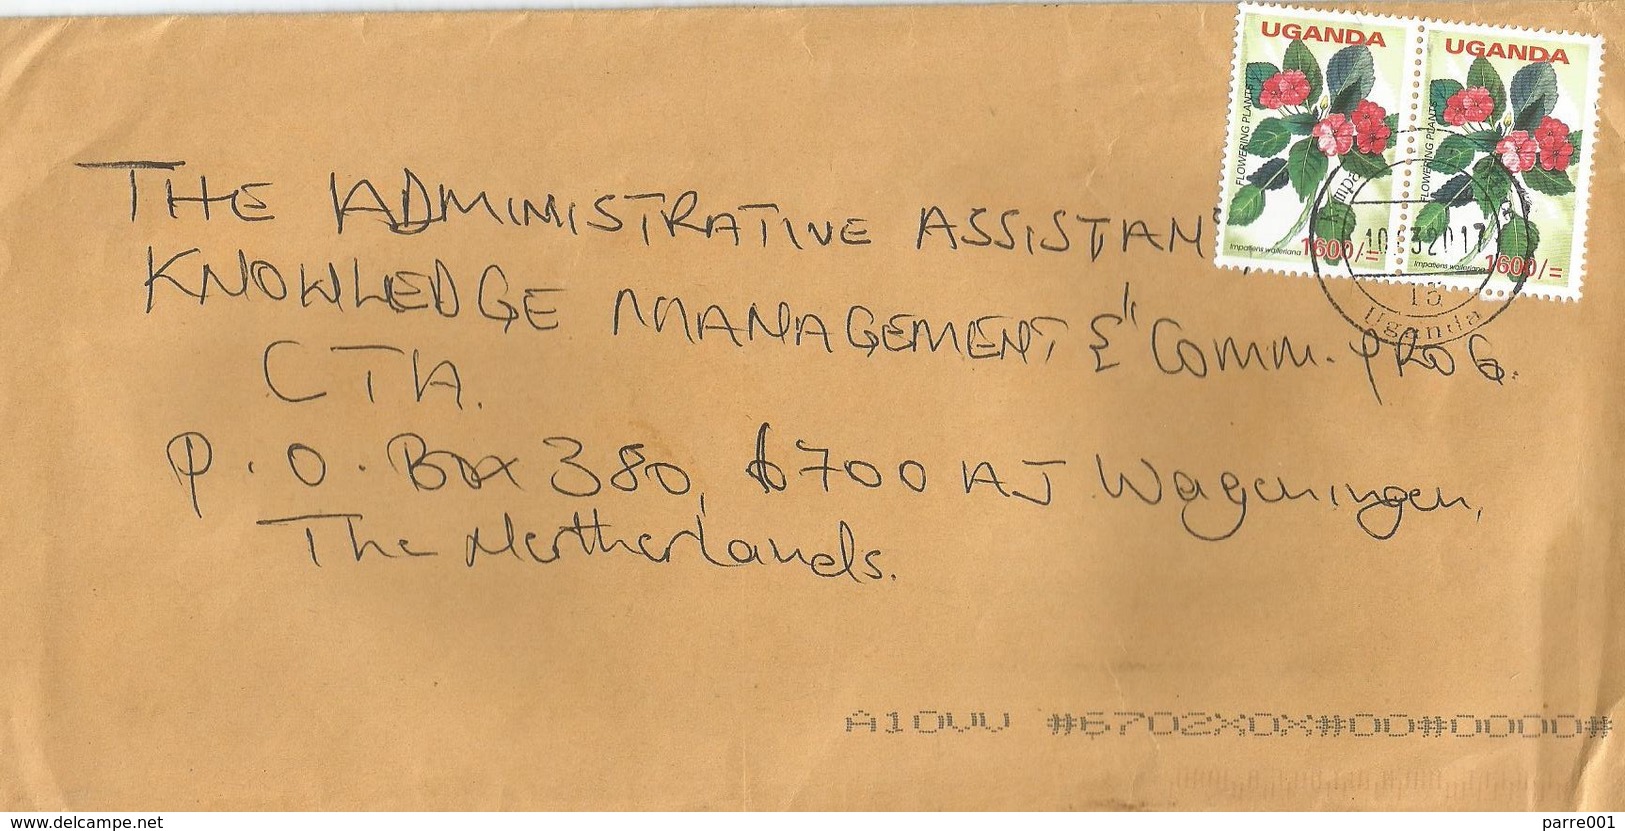 UGANDA UGANDA
FLOWERING PLANTS FLOWERING PLANTS
Impatiens walleriana 1600/= Impatiens walleriana 1600/=
10 32017
15
Uganda
THE ADMINISTRATIVE ASSISTAN
KNOWLEDGE MANAGEMENT & "Comm. PROG.
CTA.
P.O. Box 380, 6700 AJ Wageningen,
The Nertherlands.
A10VV #6702X0X#00#0000#
www.delcampe.net parre001